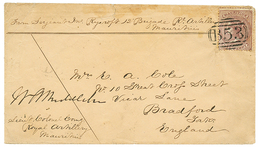 From Sergeant Jas Rycroft 12 Brigade Rl. Artillery
Mauritius
B53
Mr. A. Cole
No 10 Street
Vicar Lane
Bradford
England
Lieut. Colonel Comg
Royal Artillery
Mauritius